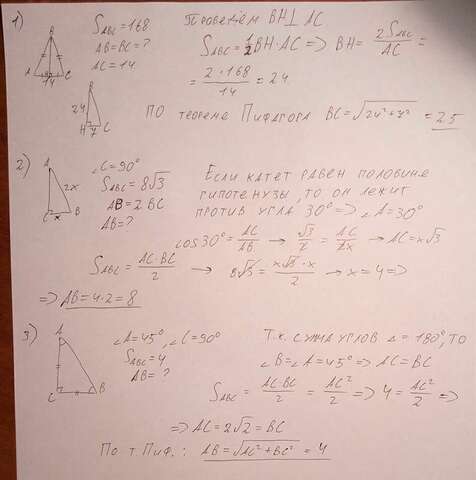 1)
S_ABC = 168
AB=BC=?
AC=14
B
A H C
14
Проведём BH⊥AC
S_ABC = 1/2 BH·AC => BH = 2S_ABC/AC =
= 2·168/14 = 24
B
24
H 7 C
По теореме Пифагора BC=√(24²+7²) = 25
2)
A
2x
C x B
∠C=90°
S_ABC=8√3
AB=2BC
AB=?
Если катет равен половине
гипотенузы, то он лежит
против угла 30° => ∠A=30°
cos30°= AC/AB → √3/2 = AC/2x → AC=x√3
S_ABC= AC·BC/2 → 8√3 = x√3·x/2 → x=4=>
=> AB=4·2=8
3)
A
C B
∠A=45°, ∠C=90°
S_ABC=4
AB=?
Т.к. сумма углов ∆=180°, то
∠B=∠A=45° => AC=BC
S_ABC = AC·BC/2 = AC²/2 => 4= AC²/2 =>
=> AC=2√2=BC
По т. Пиф.: AB=√(AC²+BC²) = 4